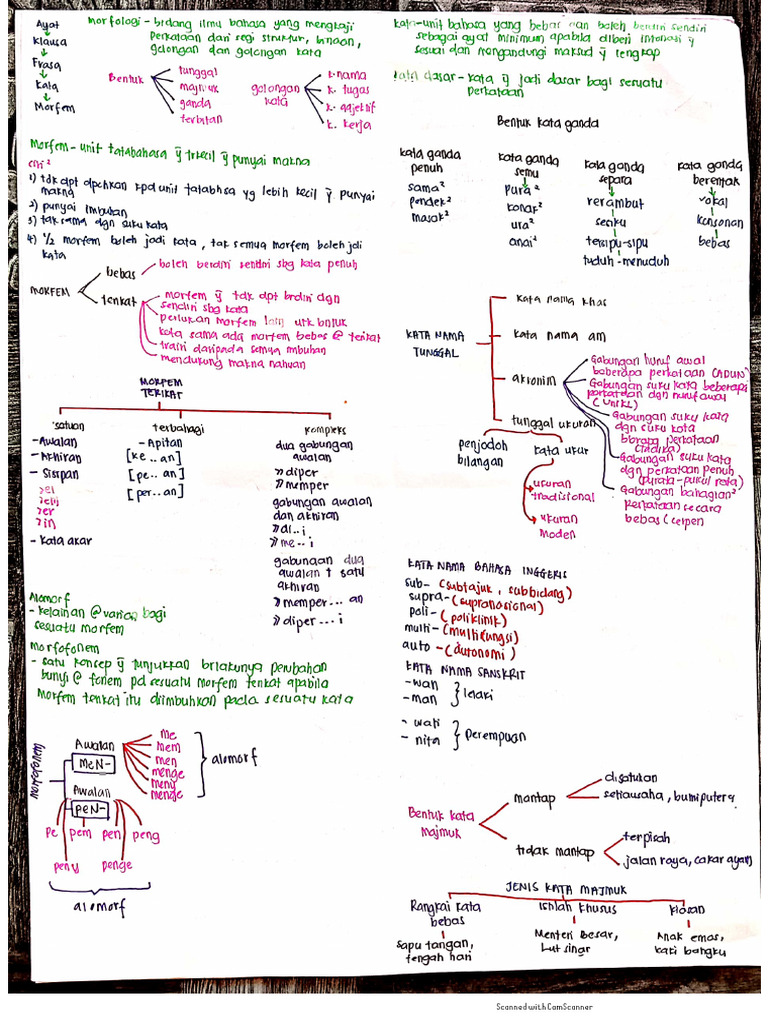 Ayat
Klausa
Frasa
Kata
Morfem
Morfologi - bidang ilmu bahasa yang mengkaji
perkataan dari segi struktur, binaan,
golongan dan golongan kata
Bentuk
tunggal
majmuk
ganda
terbitan
golongan
kata
k. nama
k. tugas
k. adjektif
k. kerja
Morfem - unit tatabahasa ỹ trkecil ỹ punyai makna
ciri²
1) tdk dpt dpchkan kpd unit tatabhsa yg lebih kecil ỹ punyai
makna
2) punyai imbuhan
3) tak sama dgn suku kata
4) 1/2 morfem boleh jadi kata, tak semua morfem boleh jdi
kata
MORFEM
bebas
boleh berdiri sendiri sbg kata penuh
terikat
morfem ỹ tdk dpt brdiri dgn
sendiri sbg kata
perlukan morfem lain utk bntuk
kata sama ada morfem bebas @ terikat
trdiri daripada semua imbuhan
mendukung makna nahuan
MORFEM
TERIKAT
satuan
- Awalan
- Akhiran
- Sisipan
>el
>em
>er
>in
- kata akar
terbahagi
- Apitan
[ke...an]
[pe...an]
[per...an]
kompleks
dua gabungan
awalan
>>diper
>>memper
gabungan awalan
dan akhiran
>>di...i
>>me...i
gabungan dua
awalan + satu
akhiran
>>memper...an
>>diper...i
Alomorf
- kelainan @ varian bagi
sesuatu morfem
Morfofonem
- satu konsep ỹ tunjukkan brlakunya perubahan
bunyi @ fonem pd sesuatu morfem terikat apabila
morfem terikat itu diimbuhkan pada sesuatu kata
Awalan
MeN-
me
mem
men
menge
meny
menge
alomorf
Awalan
PeN-
pe
pem
pen
peng
peny
penge
alomorf
kata - unit bahasa yang bebas dan boleh berdiri sendiri
sebagai ayat minimum apabila diberi intonasi ỹ
sesuai dan mengandungi maksud ỹ lengkap
kata dasar - kata ỹ jadi dasar bagi sesuatu
perkataan
Bentuk kata ganda
kata ganda
penuh
sama²
pendek²
masak²
kata ganda
semu
pura²
konar²
ura²
anai²
kata ganda
separa
rerambut
seriku
tersipu-sipu
tuduh-menuduh
kata ganda
berentak
vokal
konsonan
bebas
KATA NAMA
TUNGGAL
kata nama khas
kata nama am
akronim
Gabungan huruf awal
beberapa perkataan (ADUN)
Gabungan suku kata beberapa
perkataan dgn huruf awal
(UNIKL)
Gabungan suku kata
dgn suku kata
bbrapa perkataan
(tadika)
Gabungan suku kata
dgn perkataan penuh
(purata-pukul rata)
Gabungan bahagian²
perkataan secara
bebas (cerpen
tunggal ukuran
penjodoh
bilangan
kata ukur
ukuran
tradisional
ukuran
moden
KATA NAMA BAHASA INGGERIS
sub- (subtajuk, subbidang)
supra- (supranasional)
poli- (poliklinik)
multi- (multifungsi)
auto- (autonomi)
KATA NAMA SANSKRIT
- wan
- man
lelaki
- wati
- nita
Perempuan
Bentuk kata
majmuk
mantap
disatukan
setiausaha, bumiputera
tidak mantap
terpisah
jalan raya, cakar ayam
JENIS KATA MAJMUK
Rangkai kata
bebas
Sapu tangan,
tengah hari
Istilah khusus
Menteri Besar,
Lut sinar
kiasan
Anak emas,
kaki bangku
Scanned with CamScanner